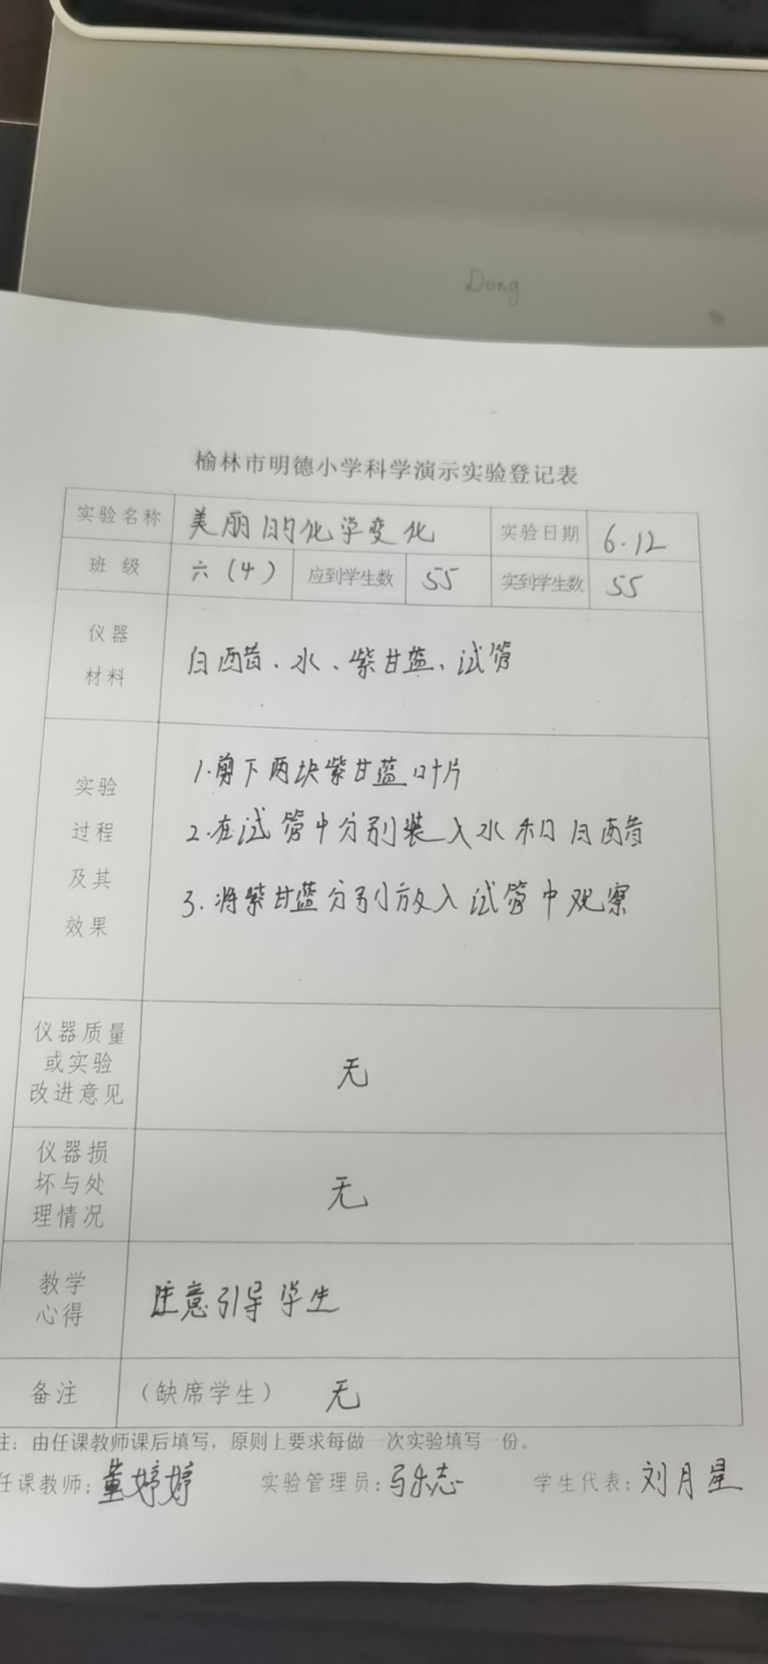 Dong
榆林市明德小学科学演示实验登记表
实验名称 美丽的化学变化 实验日期 6.12
班 级 六(4) 应到学生数 55 实到学生数 55
仪器
材料
白醋、水、紫甘蓝、试管
实验
过程
及其
效果
1.剪下两块紫甘蓝叶片
2.在试管中分别装入水和白醋
3.将紫甘蓝分别放入试管中观察
仪器质量
或实验
改进意见
无
仪器损
坏与处
理情况
无
教学
心得
注意引导学生
备注 (缺席学生) 无
注:由任课教师课后填写,原则上要求每做一次实验填写一份。
任课教师:董婷婷 实验管理员:马乐志 学生代表:刘月星